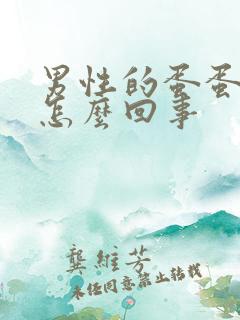 男性的蛋蛋
怎麼回事
龔維芳
未经同意禁止转载